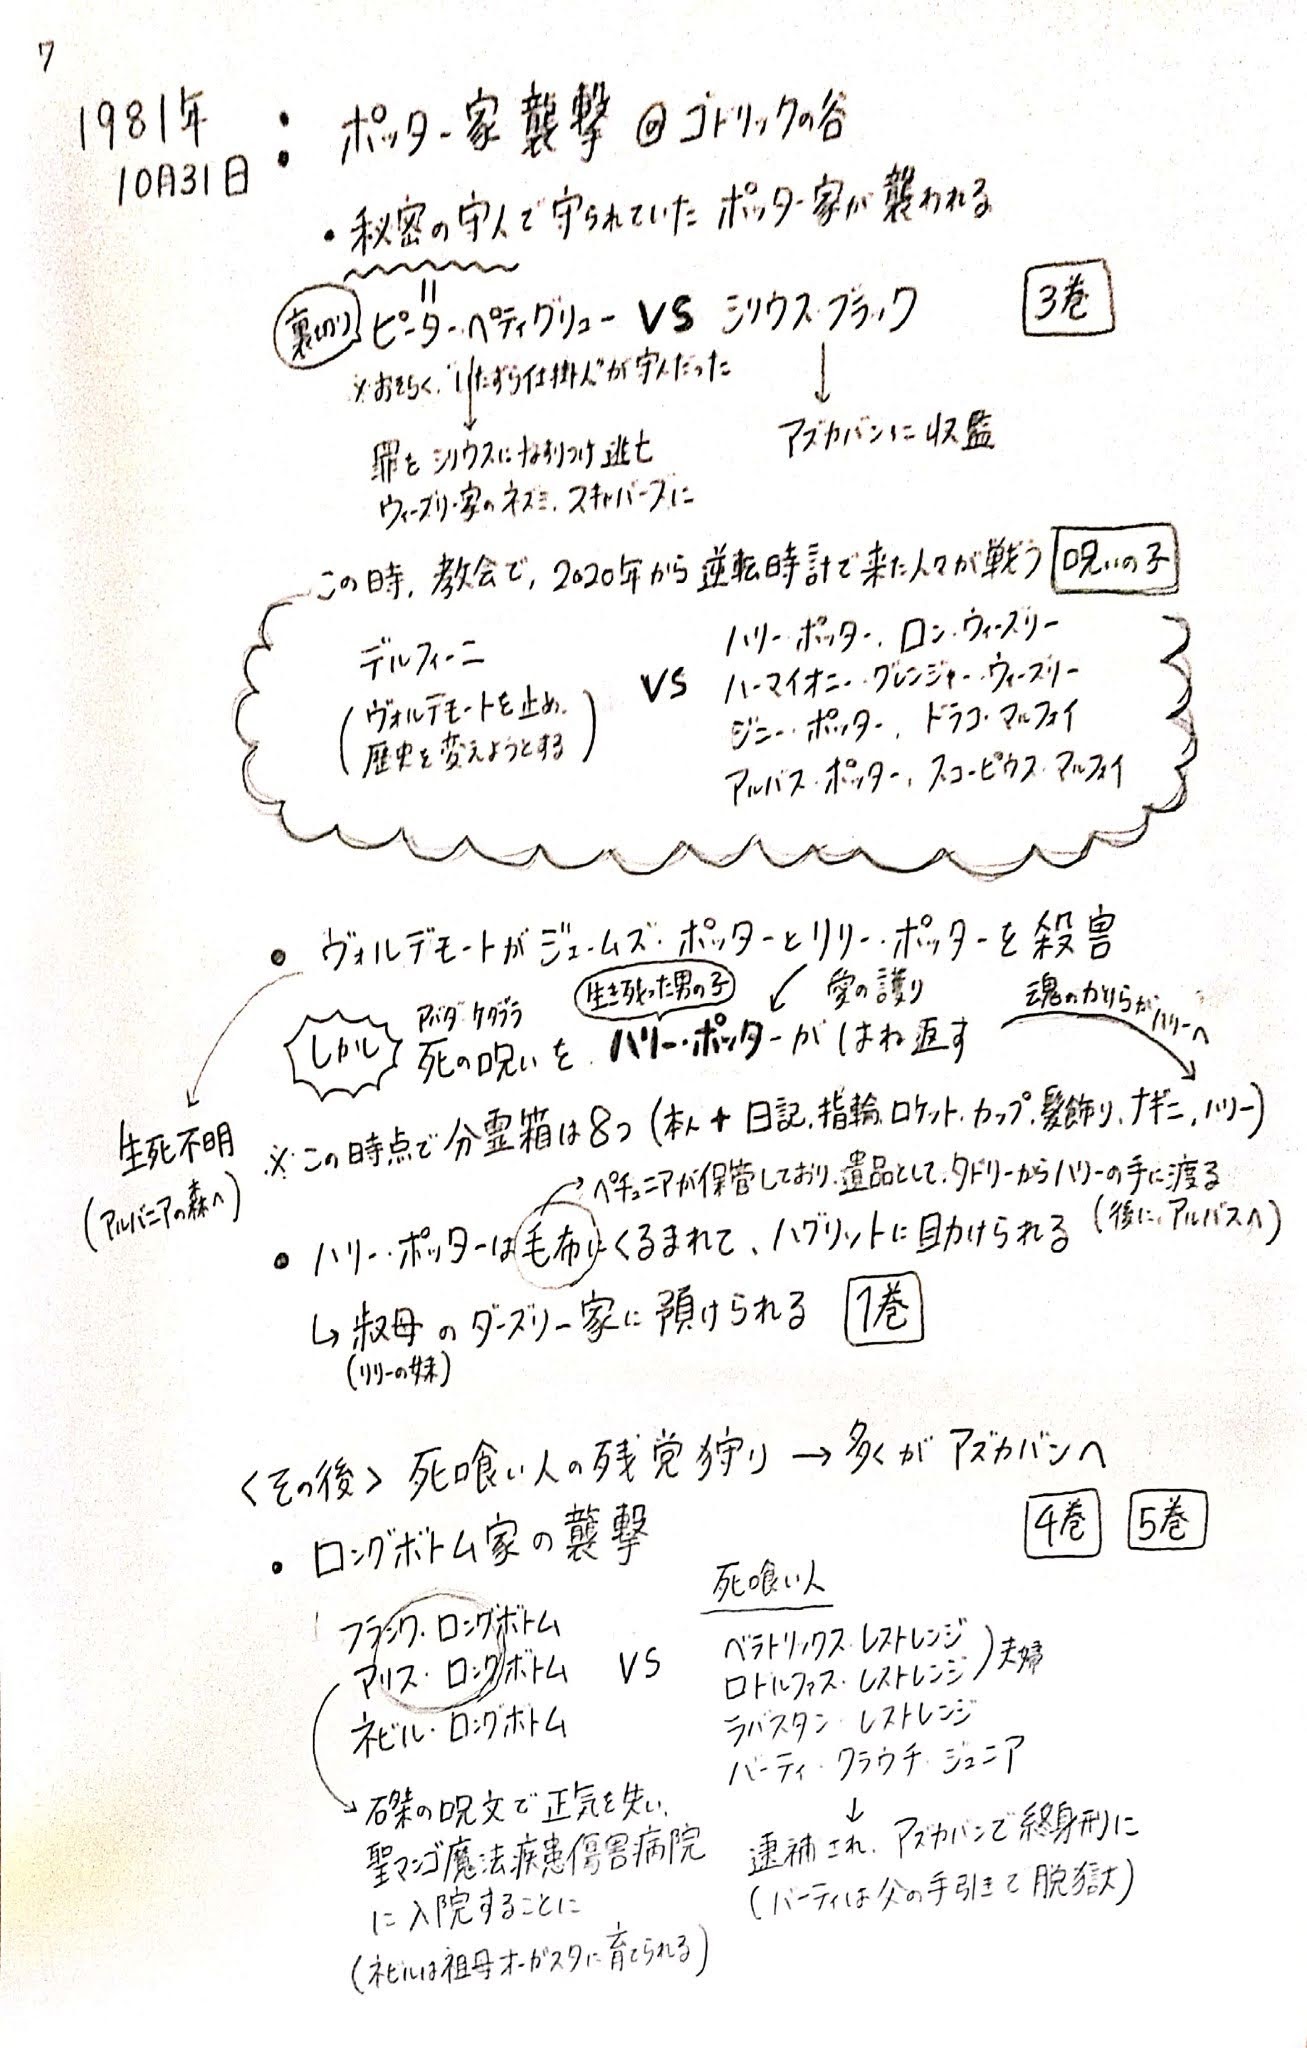 7
1981年
10月31日
: ポッター家襲撃@ゴドリックの谷
・秘密の守人で守られていたポッター家が襲われる
=
裏切り ピーター・ペティグリュー VS シリウス・ブラック 3巻
※おそらく、"いたずら仕掛人"が守人だった
↓
↓
罪をシリウスになすりつけ逃亡
アズカバンに収監
ウィーズリー家のネズミ、スキャバーズに
この時、教会で、2020年から逆転時計で来た人々が戦う 呪いの子
デルフィーニ
(ヴォルデモートを止め、
歴史を変えようとする)
VS
ハリー・ポッター、ロン・ウィーズリー
ハーマイオニー・グレンジャー・ウィーズリー
ジニー・ポッター、ドラコ・マルフォイ
アルバス・ポッター、スコーピウス・マルフォイ
・ヴォルデモートがジェームズ・ポッターとリリー・ポッターを殺害
生き残った男の子
愛の護り
魂のかけらがハリーへ
しかし
アバダ・ケダブラ
死の呪いを、ハリー・ポッターがはね返す
生死不明
(アルバニアの森へ)
※この時点で分霊箱は8つ(本人+日記、指輪、ロケット、カップ、髪飾り、ナギニ、ハリー)
→ペチュニアが保管しており、遺品として、ダドリーからハリーの手に渡る
(後に、アルバスへ)
・ハリー・ポッターは毛布にくるまれて、ハグリットに助けられる
↳叔母のダーズリー家に預けられる 1巻
(リリーの妹)
<その後>死喰い人の残党狩り→多くがアズカバンへ
・ロングボトム家の襲撃
4巻 5巻
死喰い人
フランク・ロングボトム
アリス・ロングボトム
ネビル・ロングボトム
VS
ベラトリックス・レストレンジ
ロドルファス・レストレンジ
)夫婦
ラバスタン・レストレンジ
バーティ・クラウチ・ジュニア
→磔の呪文で正気を失い、
聖マンゴ魔法疾患傷害病院
に入院することに
(ネビルは祖母オーガスタに育てられる)
↓
逮捕され、アズカバンで終身刑に
(バーティは父の手引きで脱獄)